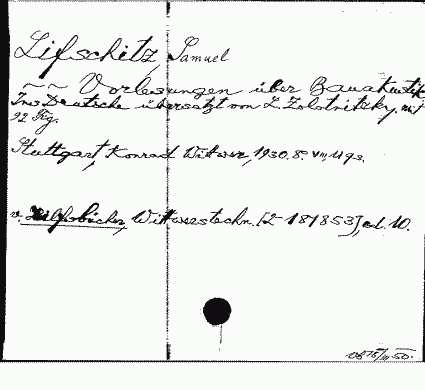 Lifschitz, Samuel
~ ~ Vorlesungen über Bauakustik
Ins Deutsche übersetzt von L. Zolotnitzky, mit
92 Fig.
Stuttgart, Konrad Wittwer, 1930. 8°. VIII, 119 s.
v. Hilfsbücher, Wittwerstechn. [Z-181853], bd. 10.